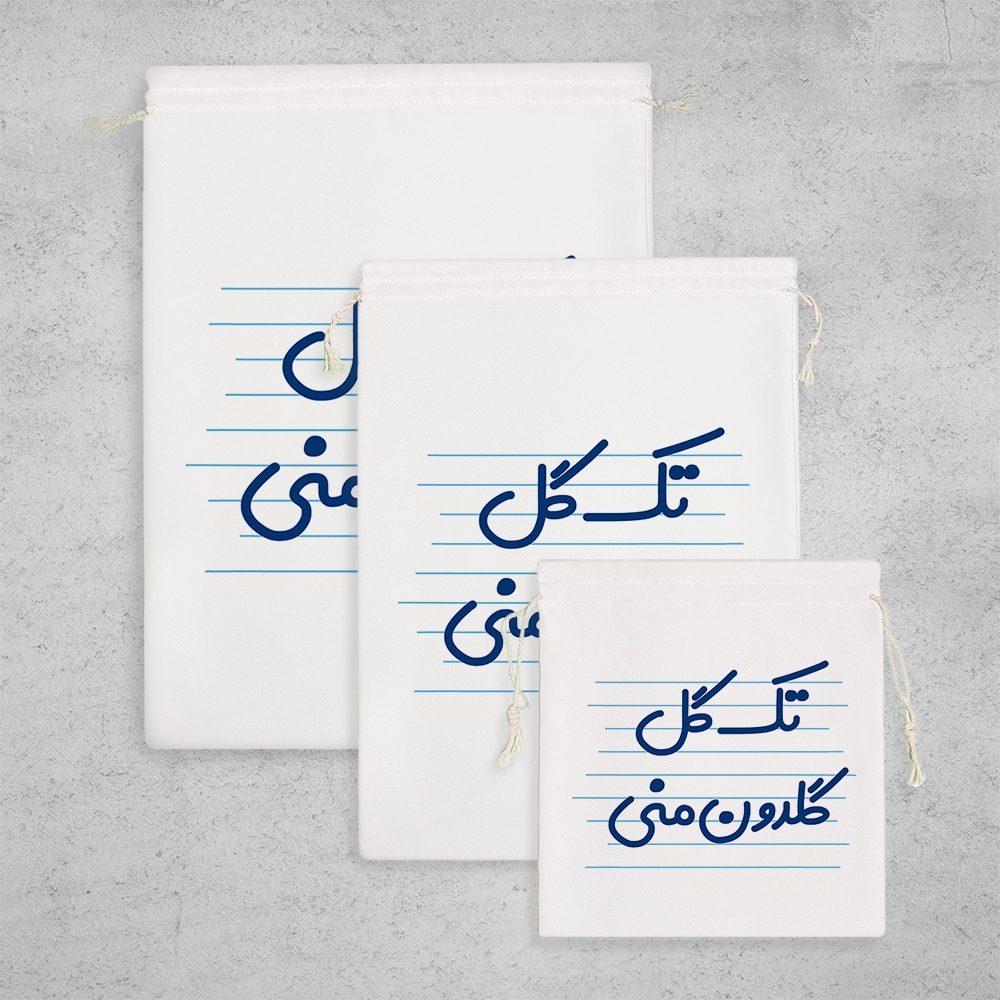 منی
تک گل
منی
تک گل
گلدون منی